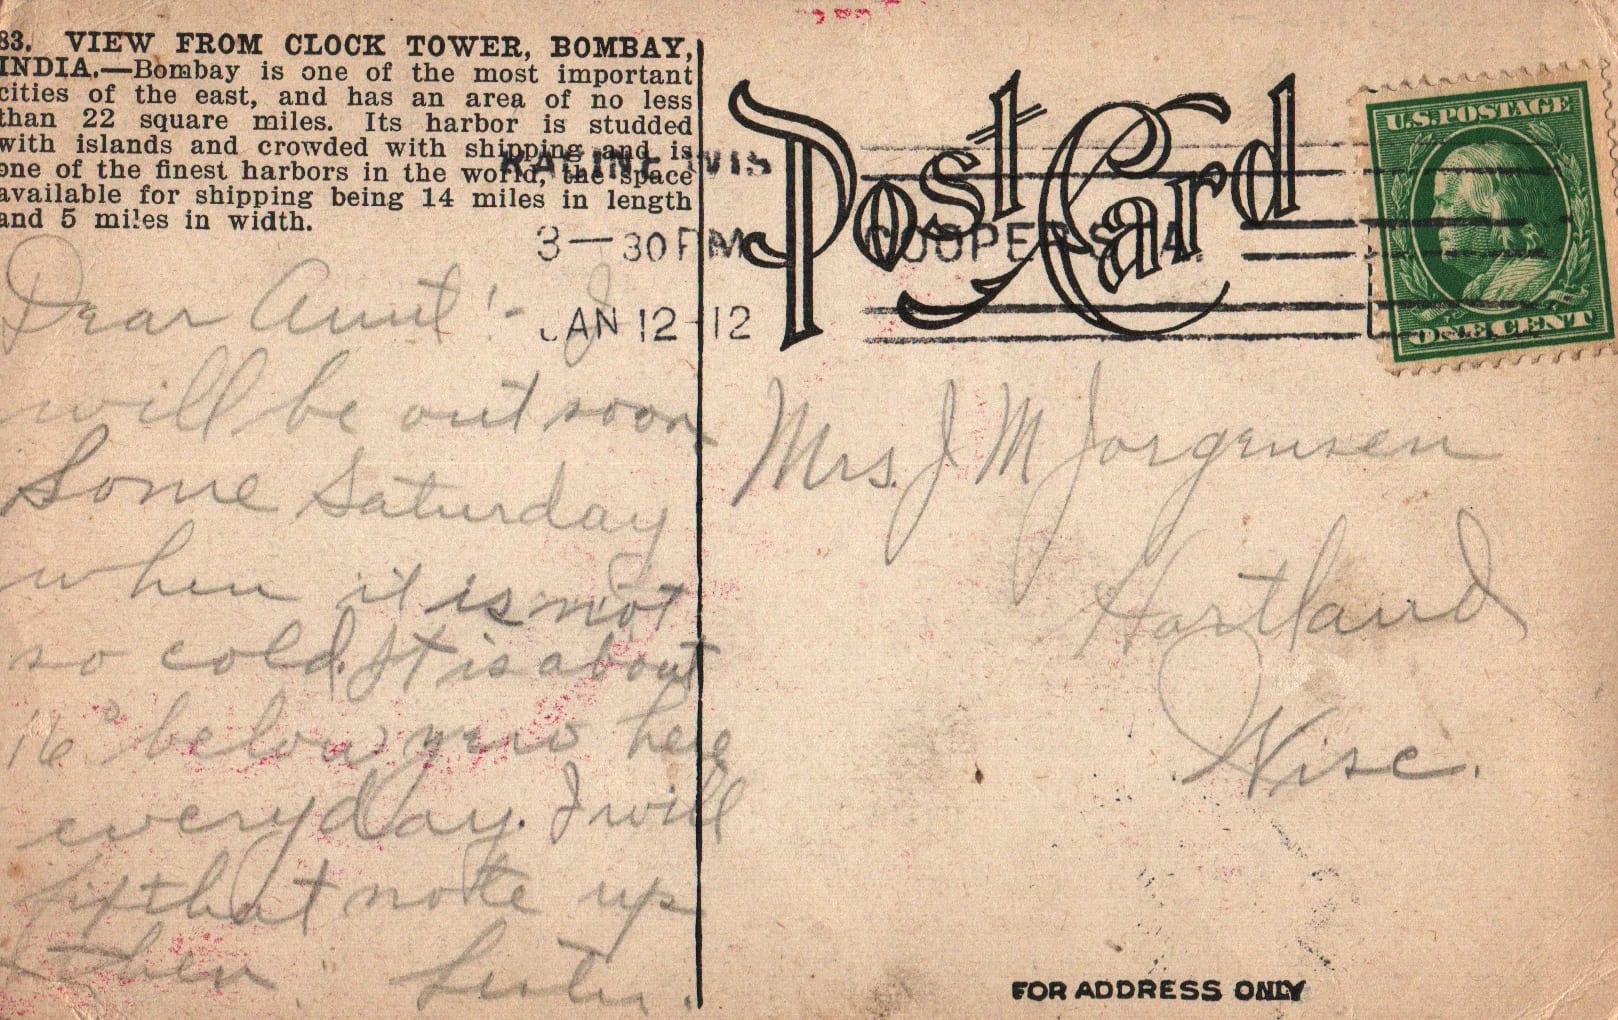 83. VIEW FROM CLOCK TOWER, BOMBAY,
INDIA.—Bombay is one of the most important
cities of the east, and has an area of no less
than 22 square miles. Its harbor is studded
with islands and crowded with shipping and is
one of the finest harbors in the world, the space
available for shipping being 14 miles in length
and 5 miles in width.
Post Card
U.S. POSTAGE
ONE CENT
RACINE WIS
3—30 PM
JAN 12-12
COOPER STA.
Dear Aunt:- I
will be out soon
Some Saturday
when it is not
so cold. It is about
16° below zero here
everyday. I will
fix that note up
then.
Mrs. J M Jorgensen
Hartland
Wisc.
FOR ADDRESS ONLY